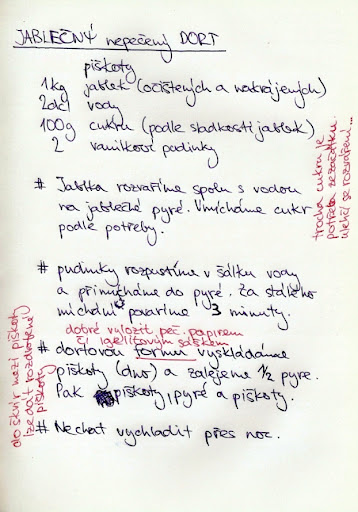 JABLEČNÝ nepečený DORT
piškoty
1kg jablek (očištěných a nakrájených)
2dcl vody
100g cukru (podle sladkosti jablek)
2 vanilkové pudinky
trocha cukru je
potřeba ze začátku.
ulehčí se rozváření...
# Jablka rozvaříme spolu s vodou
na jablečné pyré. Vmícháme cukr
podle potřeby.
# pudinky rozpustíme v šálku vody
a přimícháme do pyré. Za stálého
míchání povaříme 3 minuty.
dobré vyložit peč. papírem
či igelitovým sáčkem
# dortovou formu vyskládáme
piškoty (dno) a zalejeme 1/2 pyré.
Pak piškoty, pyré a piškoty.
do škvír mezi piškoty
lze dát rozdrcené
piškoty
# Nechat vychladit přes noc.